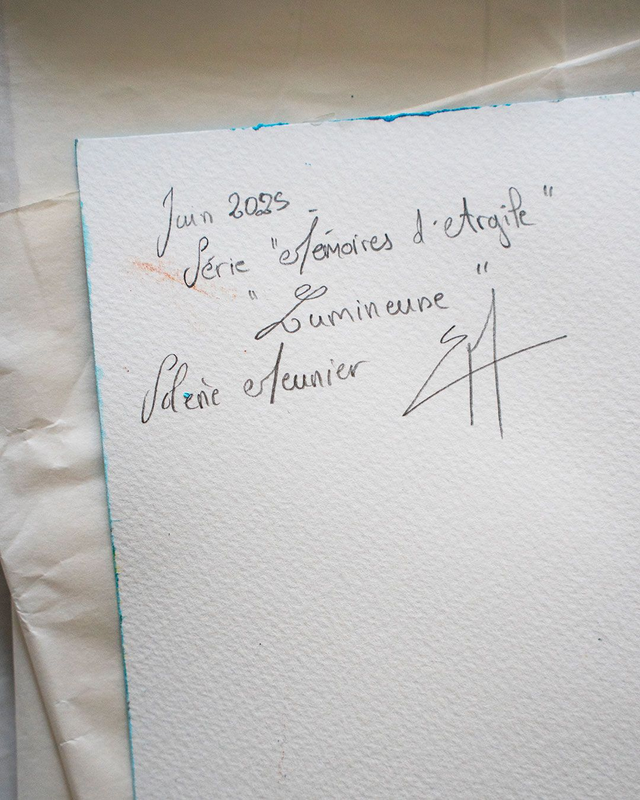 Juin 2025 -
Série "Mémoires d'Argile"
"Lumineuse"
Solène Meunier